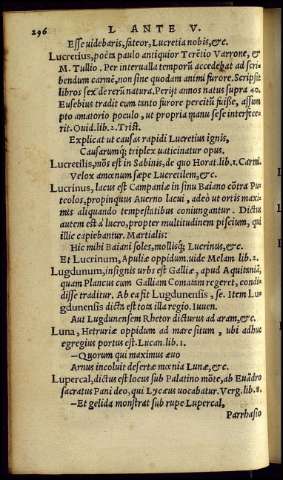 296 L ANTE V.
Esse uidebaris, fateor, Lucretia nobis, &c.
Lucretius, poëta paulo antiquior Terētio Varrone, &
M. Tullio. Per interualla temporū accedebat ad scri
bendum carmē, non sine quodam animi furore. Scripsit
libros sex de rerū natura. Periјt annos natus supra 40.
Eusebius tradit eum tanto furore percitū fuisse, assum
pto amatorio poculo, ut propria manu sese interfece
rit. Ouid. lib. 2. Trist.
Explicat ut causas rapidi Lucretius ignis,
Casurumq́; triplex uaticinatur opus.
Lucretilis, mōs est in Sabinis, de quo Horat. lib. 1. Carmi.
Velox amœnum sæpe Lucretilem, &c.
Lucrinus, lacus est Campaniæ in sinu Baiano cōtra Pu
teolos, propinquus Auerno lacui, adeò ut ortis maxi
mis aliquando tempestatibus coniungantur. Dictus
autem est à lucro, propter multitudinem piscium, qui
illic capiebantur. Martialis:
Hic mihi Baiani soles, mollisq́; Lucrinus, &c.
Et Lucrinum, Apuliæ oppidum. uide Melam lib. 2.
Lugdunum, insignis urbs est Galliæ, apud Aquitaniā,
quam Plancus cum Galliam Comatam regeret, condi
disse traditur. Ab ea sit Lugdunensis, se. Item Lu
gdunensis dicta est tota illa regio. Iuuen.
Aut Lugdunensem Rhetor dicturus ad aram, &c.
Luna, Hetruriæ oppidum ad mare situm, ubi adhuc
egregius portus est. Lucan. lib. 1.
—Quorum qui maximus æuo
Arnus incoluit desertæ mœnia Lunæ, &c.
Lupercal, dictus est locus sub Palatino mōte, ab Euādro
sacratus Pani deo, qui Lycæus uocabatur. Verg. lib. 8.
—Et gelida monstrat sub rupe Lupercal,
Parrhasio